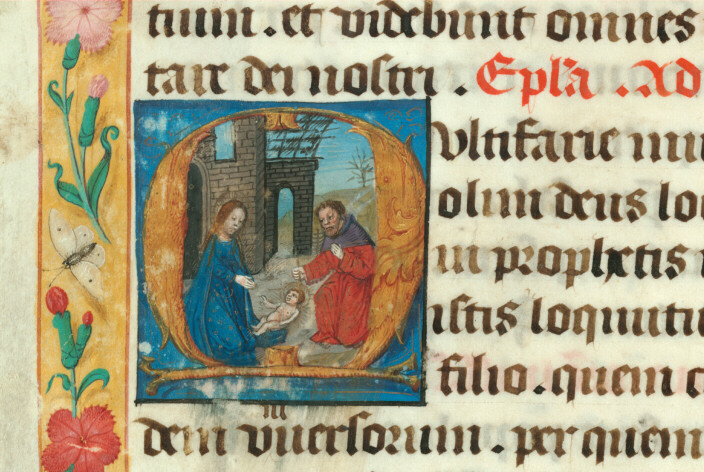 tuum. et videbunt omnes
tare dei nostri . Epl'a . Ad
MVltifarie mu
olim deus lo
in prophetis
istis loquutu
filio . quem c
dem viuersorum . per quem